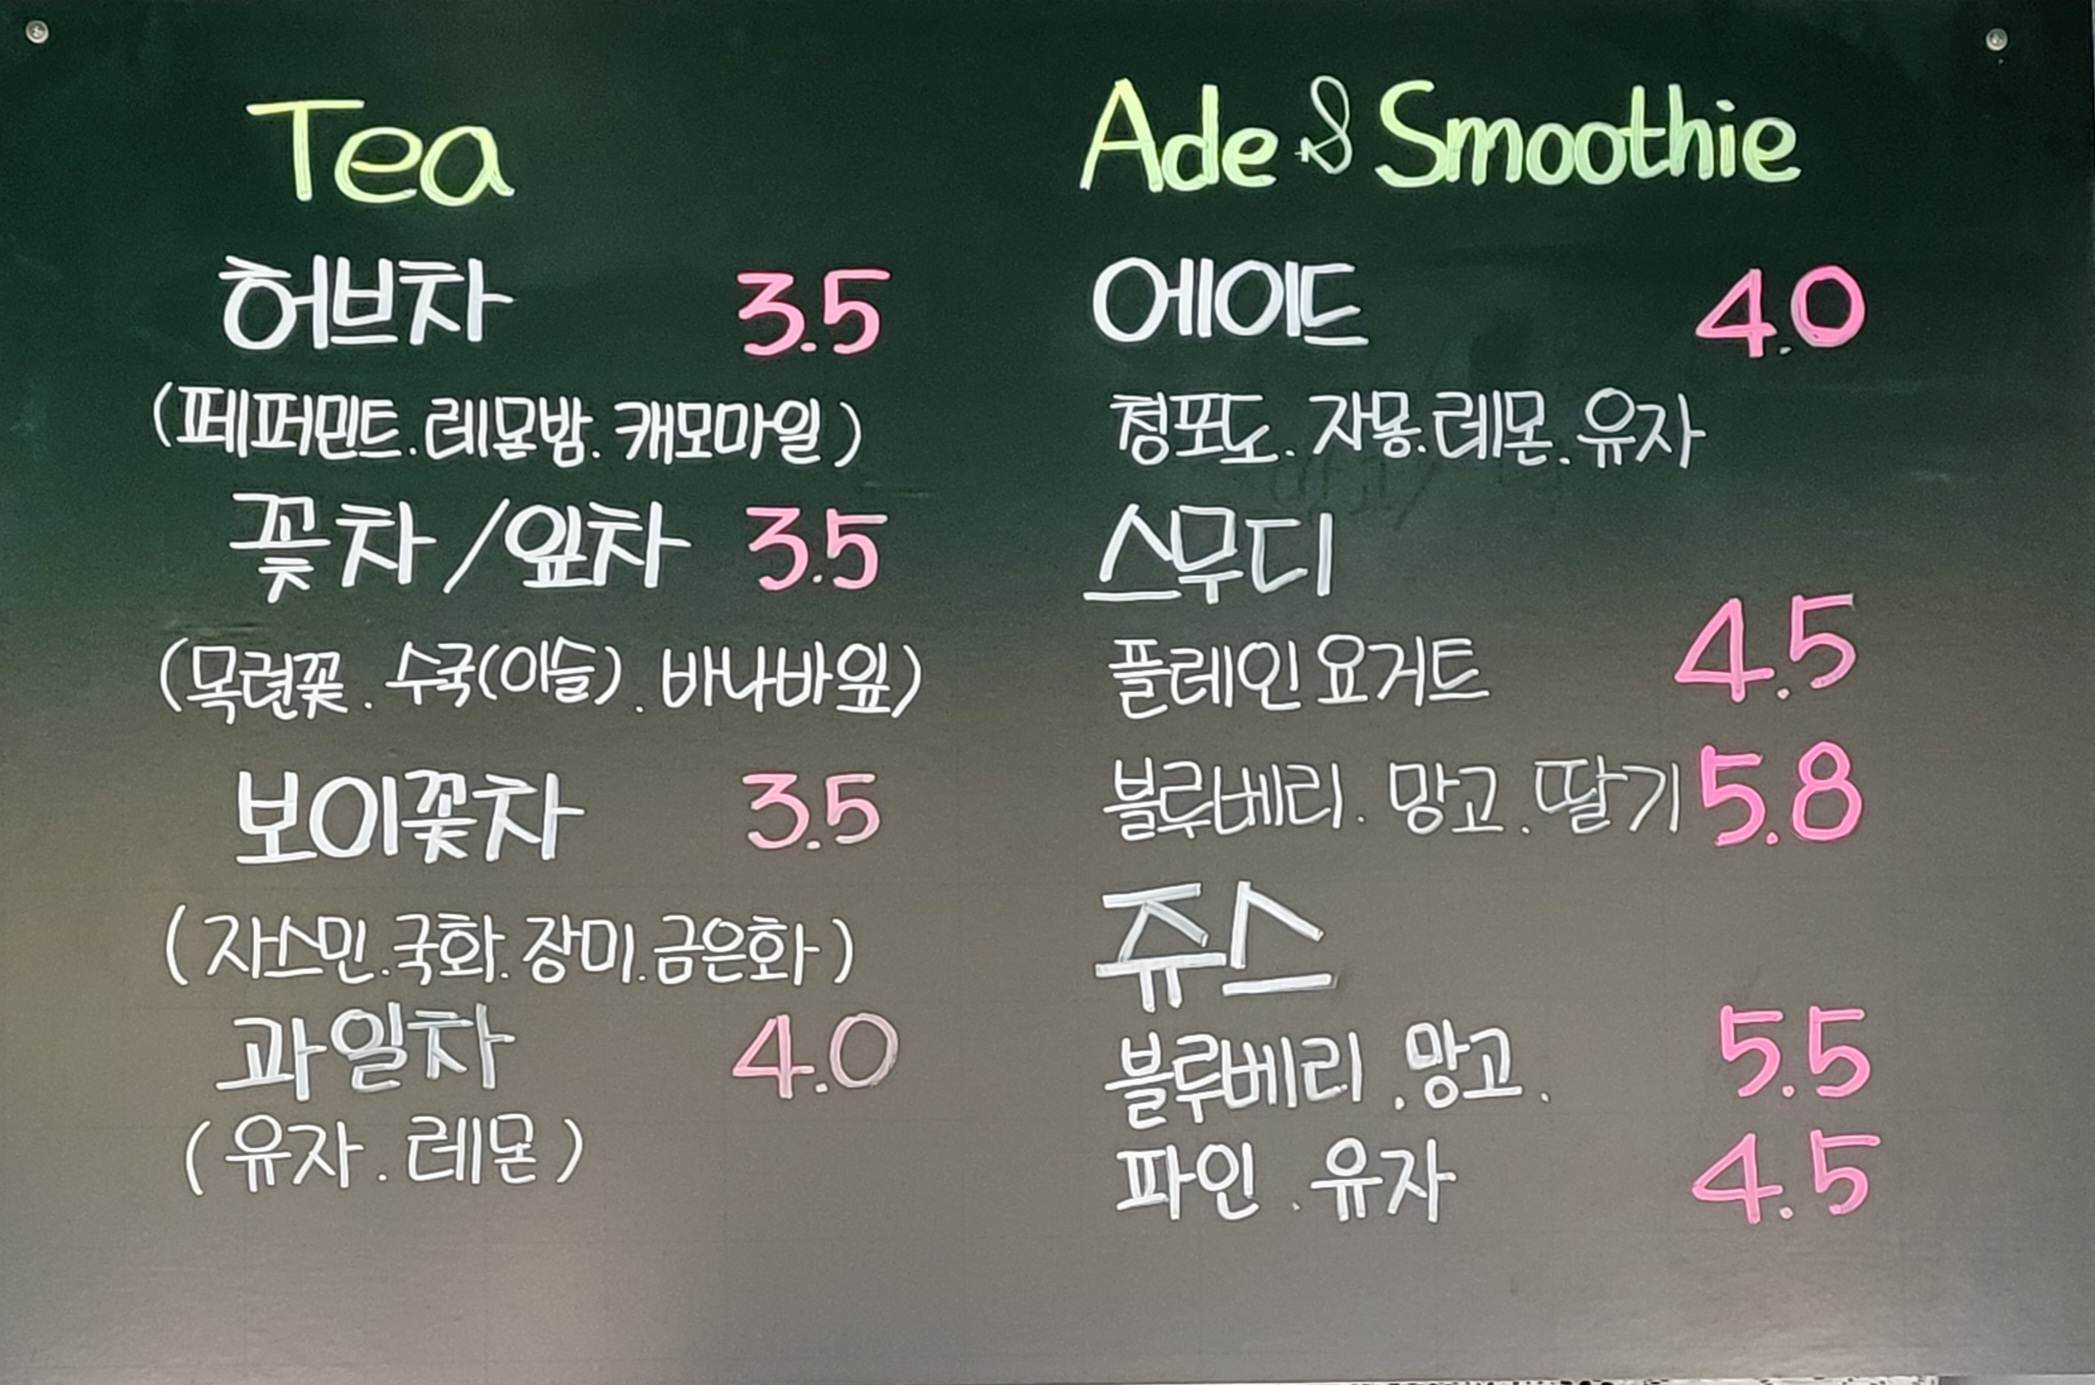 Tea
허브차 3.5
(페퍼민트.레몬밤.캐모마일)
꽃차/잎차 3.5
(목련꽃.수국(이슬).바나바잎)
보이꽃차 3.5
(자스민.국화.장미.금은화)
과일차 4.0
(유자.레몬)
Ade & Smoothie
에이드 4.0
청포도.자몽.레몬.유자
스무디
플레인요거트 4.5
블루베리.망고.딸기 5.8
쥬스
블루베리.망고. 5.5
파인.유자 4.5